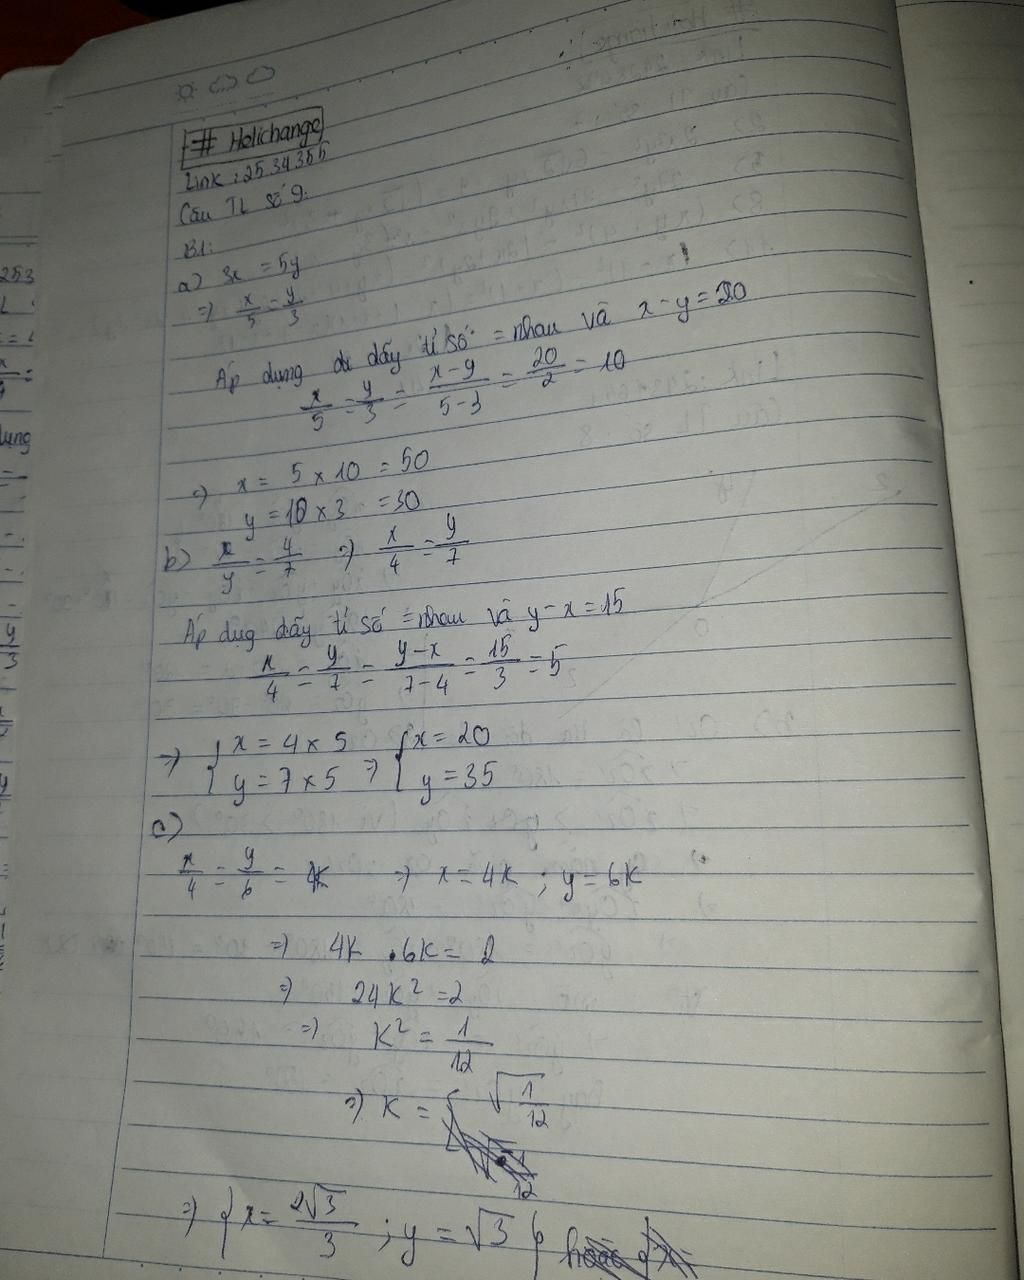 # Holichange
Link: 2534355
Câu TL số 9:
B1:
a) 3x = 5y
=> x/5 = y/3
Áp dụng dc dãy tỉ số = nhau và x - y = 20
x/5 = y/3 = x-y/5-3 = 20/2 = 10
=> x = 5 × 10 = 50
y = 10 × 3 = 30
b) x/y = 4/7 => x/4 = y/7
Áp dụg dãy tỉ số = nhau và y - x = 15
x/4 = y/7 = y-x/7-4 = 15/3 = 5
=> { x = 4 × 5 { x = 20
y = 7 × 5 => y = 35
c)
x/4 = y/6 = k => x = 4k ; y = 6k
=> 4k . 6k = 2
=> 24k² = 2
=> k² = 1/12
=> k = √1/12
=> { x = 2√3/3 ; y = √3 }